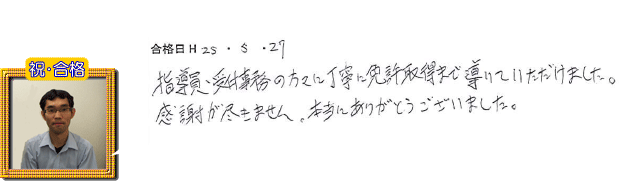 祝・合格
合格日 H 25 ・ 5 ・27
指導員・受付事務の方々に丁寧に免許取得まで導いていただけました。
感謝が尽きません。本当にありがとうございました。